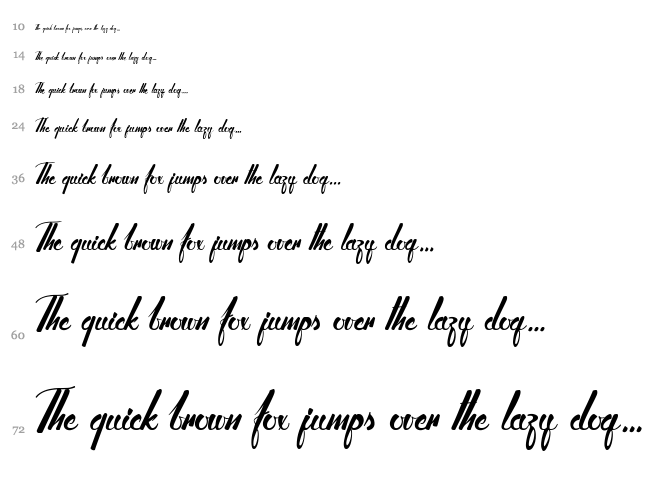 10 The quick brown fox jumps over the lazy dog...
14 The quick brown fox jumps over the lazy dog...
18 The quick brown fox jumps over the lazy dog...
24 The quick brown fox jumps over the lazy dog...
36 The quick brown fox jumps over the lazy dog...
48 The quick brown fox jumps over the lazy dog...
60 The quick brown fox jumps over the lazy dog...
72 The quick brown fox jumps over the lazy dog...